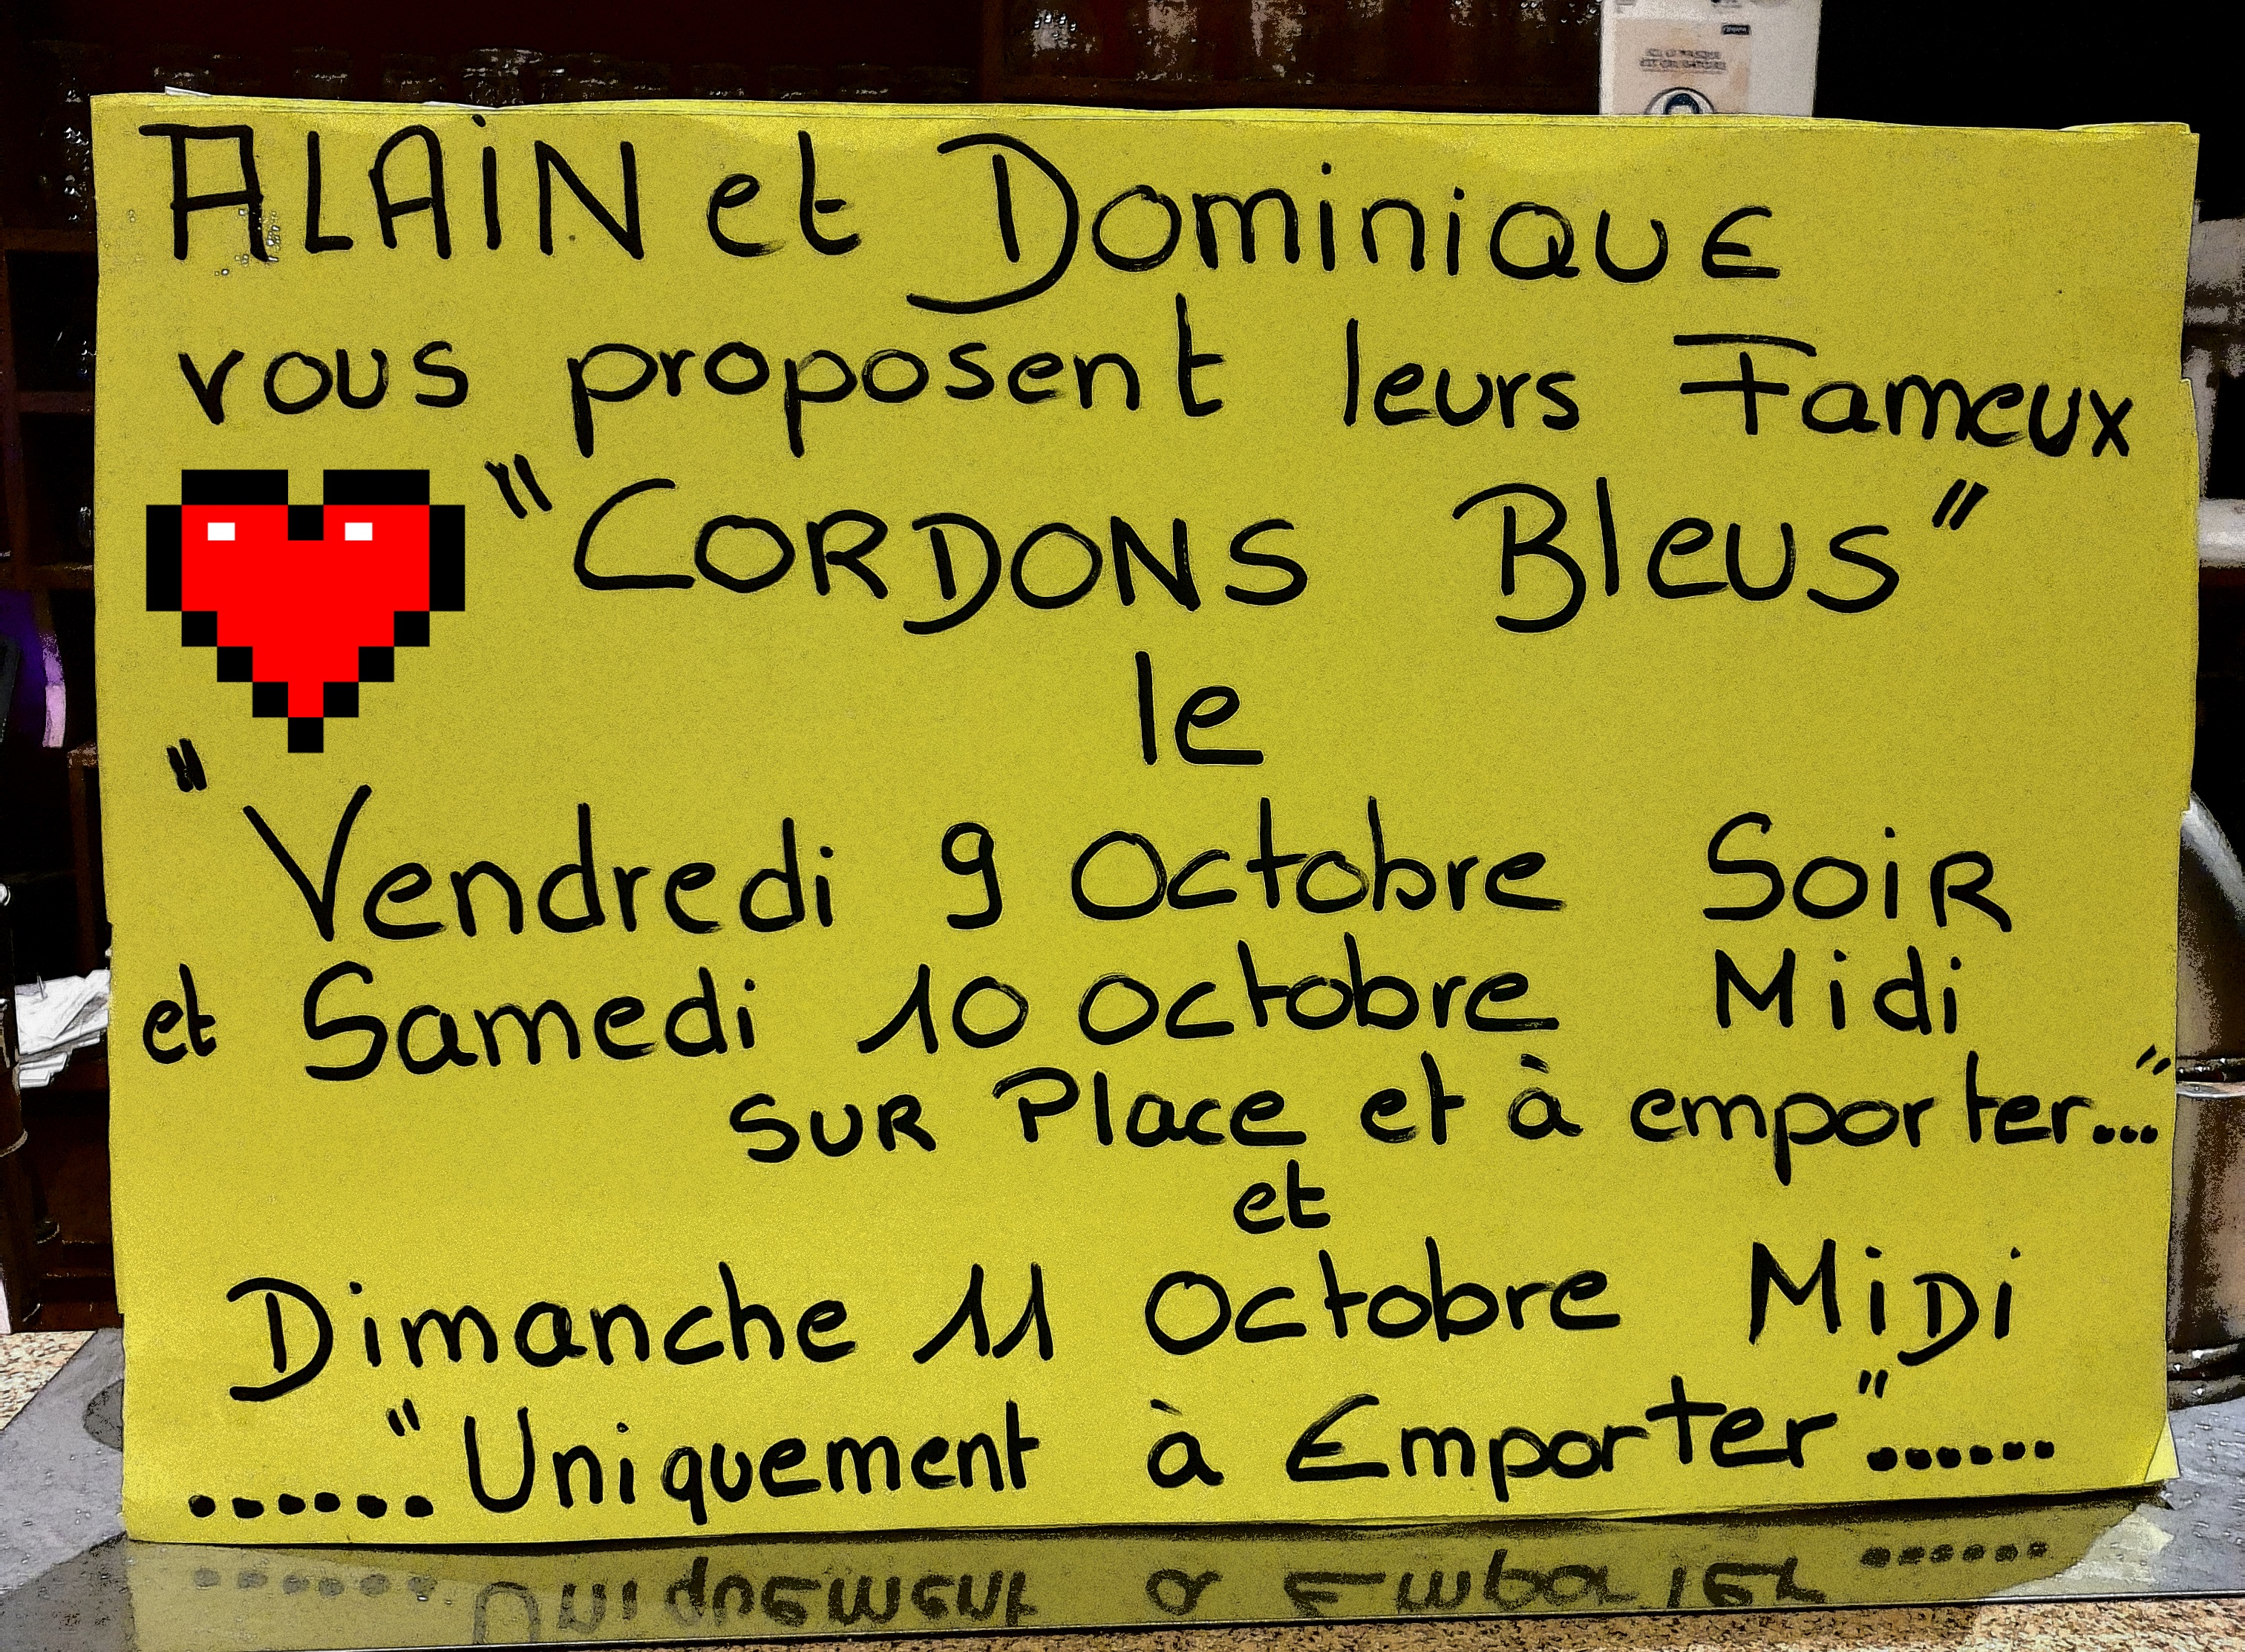 ICI LE MASQUE
EST OBLIGATOIRE
ALAIN et DOMINIQUE
vous proposent leurs Fameux
"CORDONS Bleus"
le
"Vendredi 9 Octobre SOIR
et Samedi 10 octobre Midi
SUR Place et à emporter..."
et
Dimanche 11 Octobre MIDI
......"Uniquement à Emporter"......